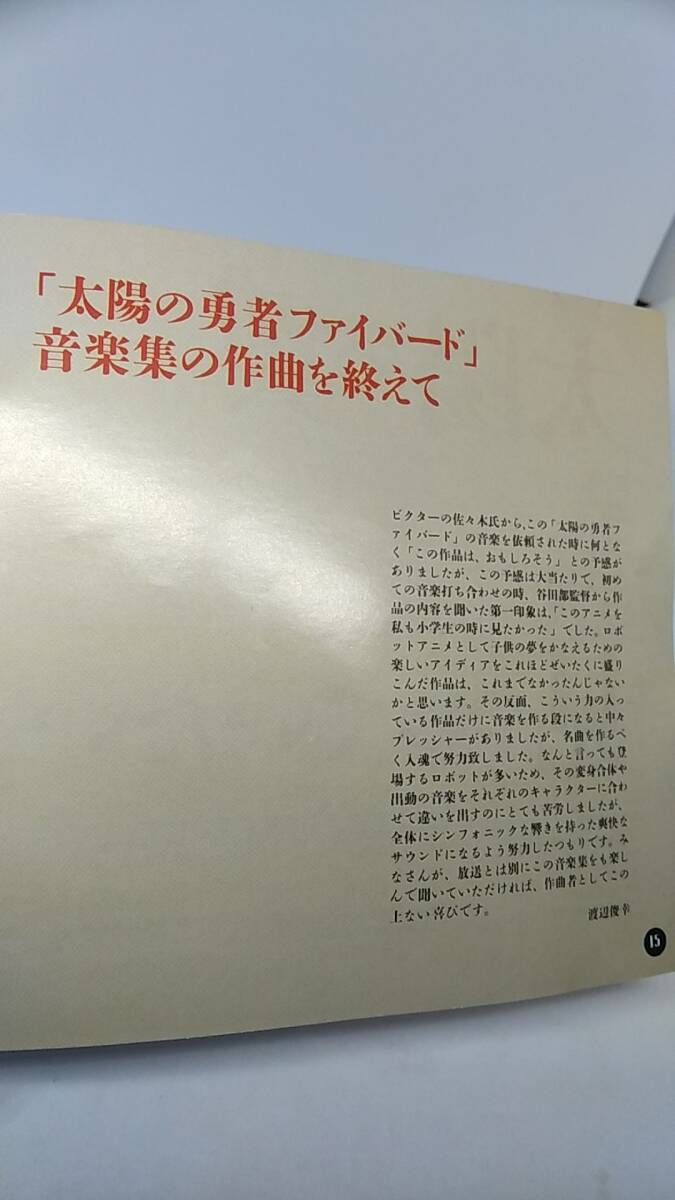 「太陽の勇者ファイバード」
音楽集の作曲を終えて
ビクターの佐々木氏から、この「太陽の勇者フ
ァイバード」の音楽を依頼された時に何とな
く「この作品は、おもしろそう」との予感が
ありましたが、この予感は大当たりで、初め
ての音楽打ち合わせの時、谷田部監督から作
品の内容を聞いた第一印象は、「このアニメを
私も小学生の時に見たかった」でした。ロボ
ットアニメとして子供の夢をかなえるための
楽しいアイディアをこれほどぜいたくに盛り
こんだ作品は、これまでなかったんじゃない
かと思います。その反面、こういう力の入っ
ている作品だけに音楽を作る段になると中々
プレッシャーがありましたが、名曲を作るべ
く入魂で努力致しました。なんと言っても登
場するロボットが多いため、その変身合体や
出動の音楽をそれぞれのキャラクターに合わ
せて違いを出すのにとても苦労しましたが、
全体にシンフォニックな響きを持った爽快な
サウンドになるよう努力したつもりです。み
なさんが、放送とは別にこの音楽集をも楽し
んで聞いていただければ、作曲者としてこの
上ない喜びです。
渡辺俊幸
15